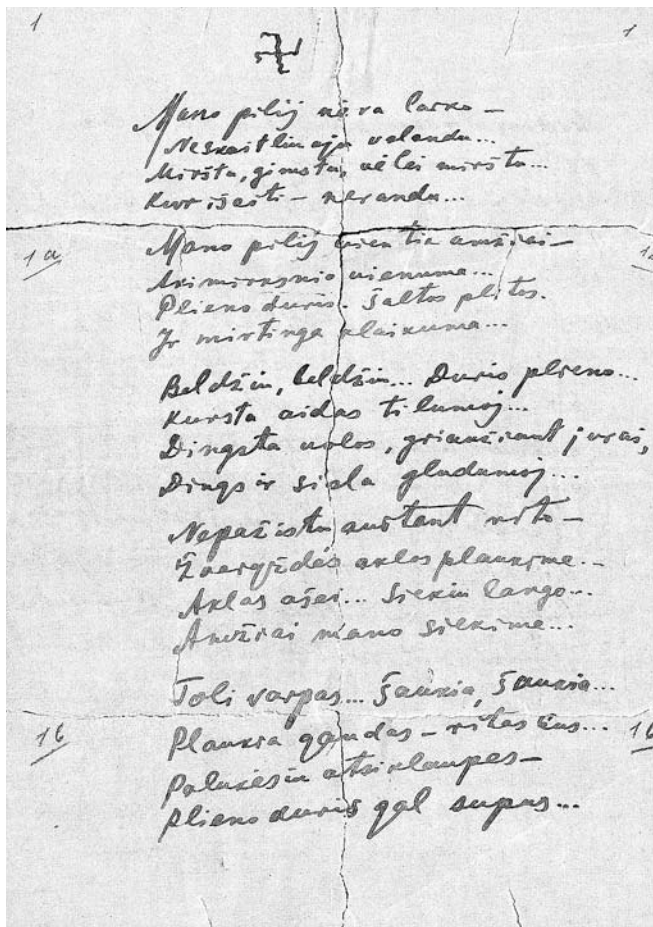 1 1
Mano pilij nėra laiko –
Neskaitliuoja valandu...
Miršta, gimsta, vėlei miršta...
Kur išeiti – nerandu...
1a Mano pilij vien tik amžiai –
Akimirksnio vienuma...
Plieno durįs. Šaltos plitos.
Ir mirtinga klaikuma...
Beldžiu, beldžiu... Duris plieno...
Kursta aidas tilumoj...
Dingsta uolos, griaužiant jurai,
Dings ir siela gludumoj...
Nepažįstu auštant rito –
Žvaigždės aklos plaukime...
Aklas ašai... Siekiu lango...
Amžiai mano siekime...
Toli varpas... Šaukia, šaukia...
1b Plaukia gaudas – ritas bus... 1b
Palukėsiu atsiklaupęs –
Plieno duris gal supus...